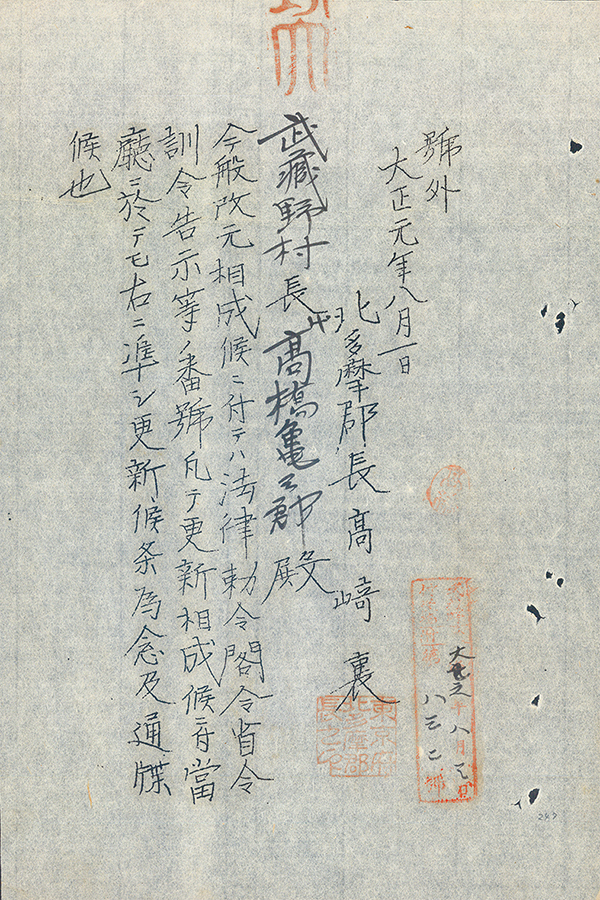 號外
大正元年八月一日
北多摩郡長 高﨑 襄
武藏野村長 高橋亀之郎殿
今般改元相成候ニ付テハ法律勅令閣令省令
訓令告示等ノ番號凡テ更新相成候ニ付當
廳ニ於テモ右ニ準シ更新候条為念及通牒
候也
大正元年八月 日
八三二號
東京府北多摩郡長之印
287